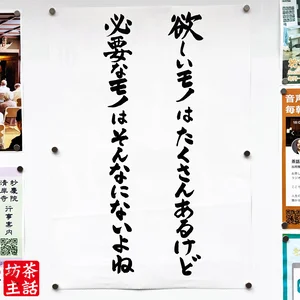 欲しいモノはたくさんあるけど
必要なモノはそんなにないよね
音声
毎朝
妙慶院
清岸寺
行事案内
坊主
茶話